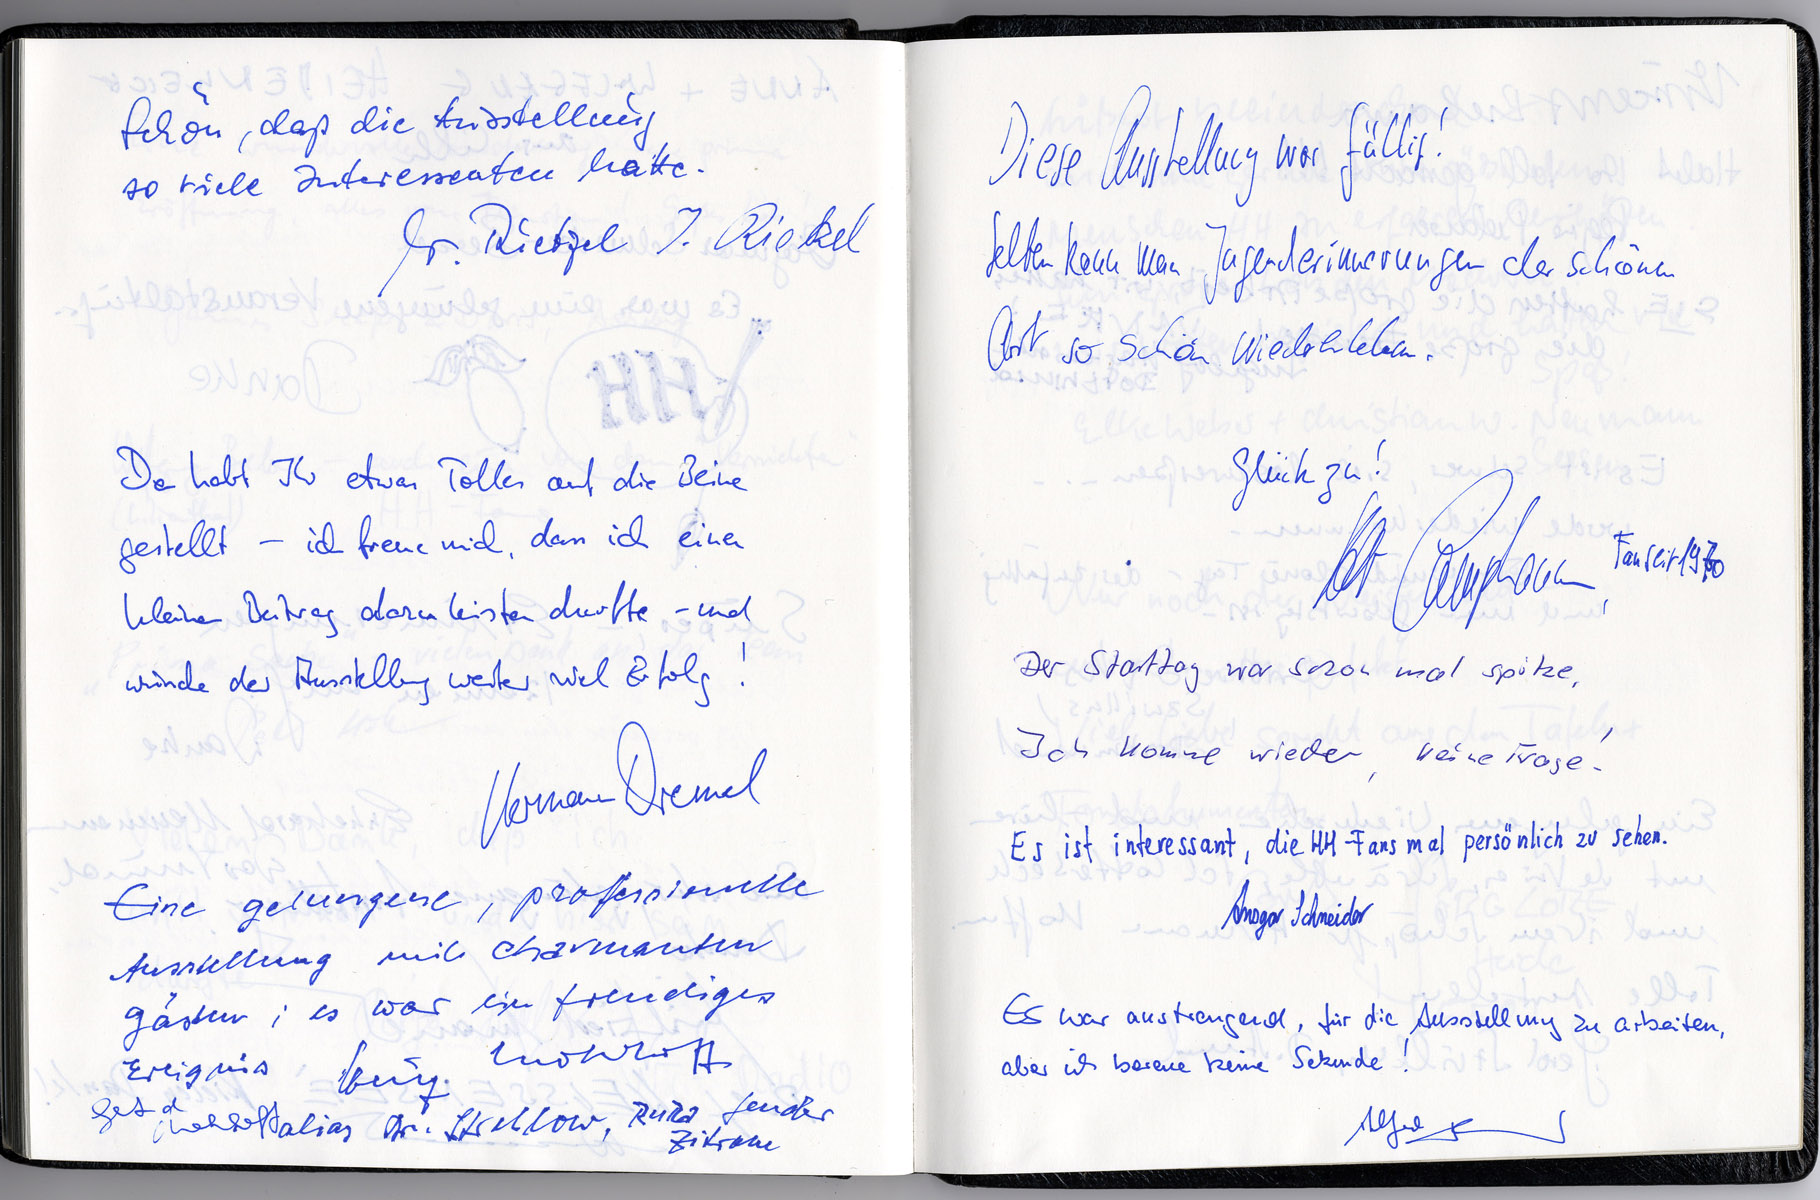 Schön, daß die Ausstellung
so viele Interessenten hatte.
Dr. Rietzel J. Riekel
Da habt Ihr etwas Tolles auf die Beine
gestellt – ich freue mich, dass ich einen
kleinen Beitrag dazu leisten durfte – und
wünsche der Ausstellung weiter viel Erfolg!
Hermann Dremel
Eine gelungene, professionelle
Ausstellung mit charmanten
Gästen; es war ein freudiges
Ereignis
alias Dr. Strehlow,
Zitrone
Diese Ausstellung war fällig!
Selten kann man Jugenderinnerungen der schönen
Art so schön wiedererleben.
Glück zu!
Fan seit 1970
Der Starttag war schon mal spitze,
Ich komme wieder, keine Frage!
Es ist interessant, die HH-Fans mal persönlich zu sehen.
Ansgar Schneider
Es war anstrengend, für die Ausstellung zu arbeiten,
aber ich bereue keine Sekunde!
Alfred